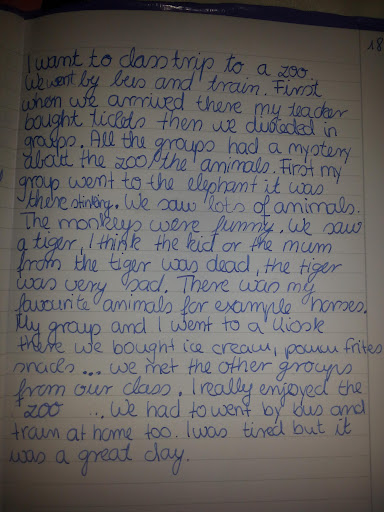 I want to class trip to a zoo
We went by bus and train. First
when we arrived there my teacher
bought tickets then we in
groups. All the groups had a mystery
about the zoo, the animals. First my
group went to the elephant it was
there stinking. We saw lots of animals.
The monkeys were funny. We saw
a tiger, I think the kid or the mum
from the tiger was dead, the tiger
was very sad. There was my
favourite animals for example horses.
My group and I went to a kiosk
there we bought ice cream, pommes frites
snacks... we met the other groups
from our class. I really enjoyed the
zoo ... We had to went by bus and
train at home too. I was tired but it
was a great day.
18